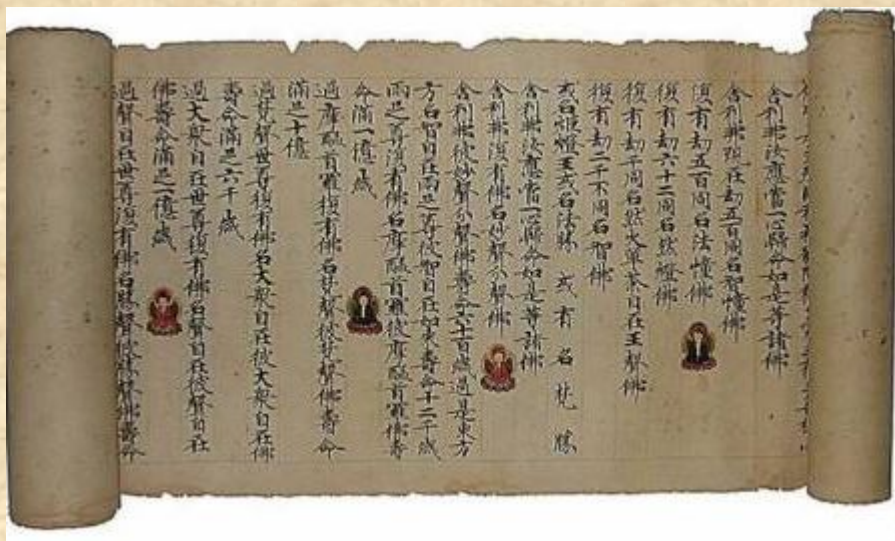 舍利弗汝應當一心歸命如是等諸佛
舍利弗現在劫五百同名智幢佛
復有劫五百同名法幢佛
復有劫六十二同名然燈佛
復有劫千同名然大 自在王聲佛
復有劫二千不同名智佛
或名 燈王或名法勝 或有名梵勝
舍利弗汝應當一心歸命如是等諸佛
舍利弗復有佛名妙聲分聲佛
舍利弗彼妙聲分聲佛壽命六十百歲過是東方
方名智自在兩足尊彼智自在如來壽命十二千歲
兩足尊復有佛名摩醯首羅彼摩醯首羅佛壽
命滿一億歲
過摩醯首羅復有佛名梵聲彼梵聲佛壽命
滿足十億
過梵聲世尊復有佛名大衆自在彼大衆自在佛
壽命滿足六千歲
過大衆自在世尊復有佛名聲自在彼聲自在
佛壽命滿足一億歲
過聲自在世尊復有佛名勝聲彼勝聲佛壽命